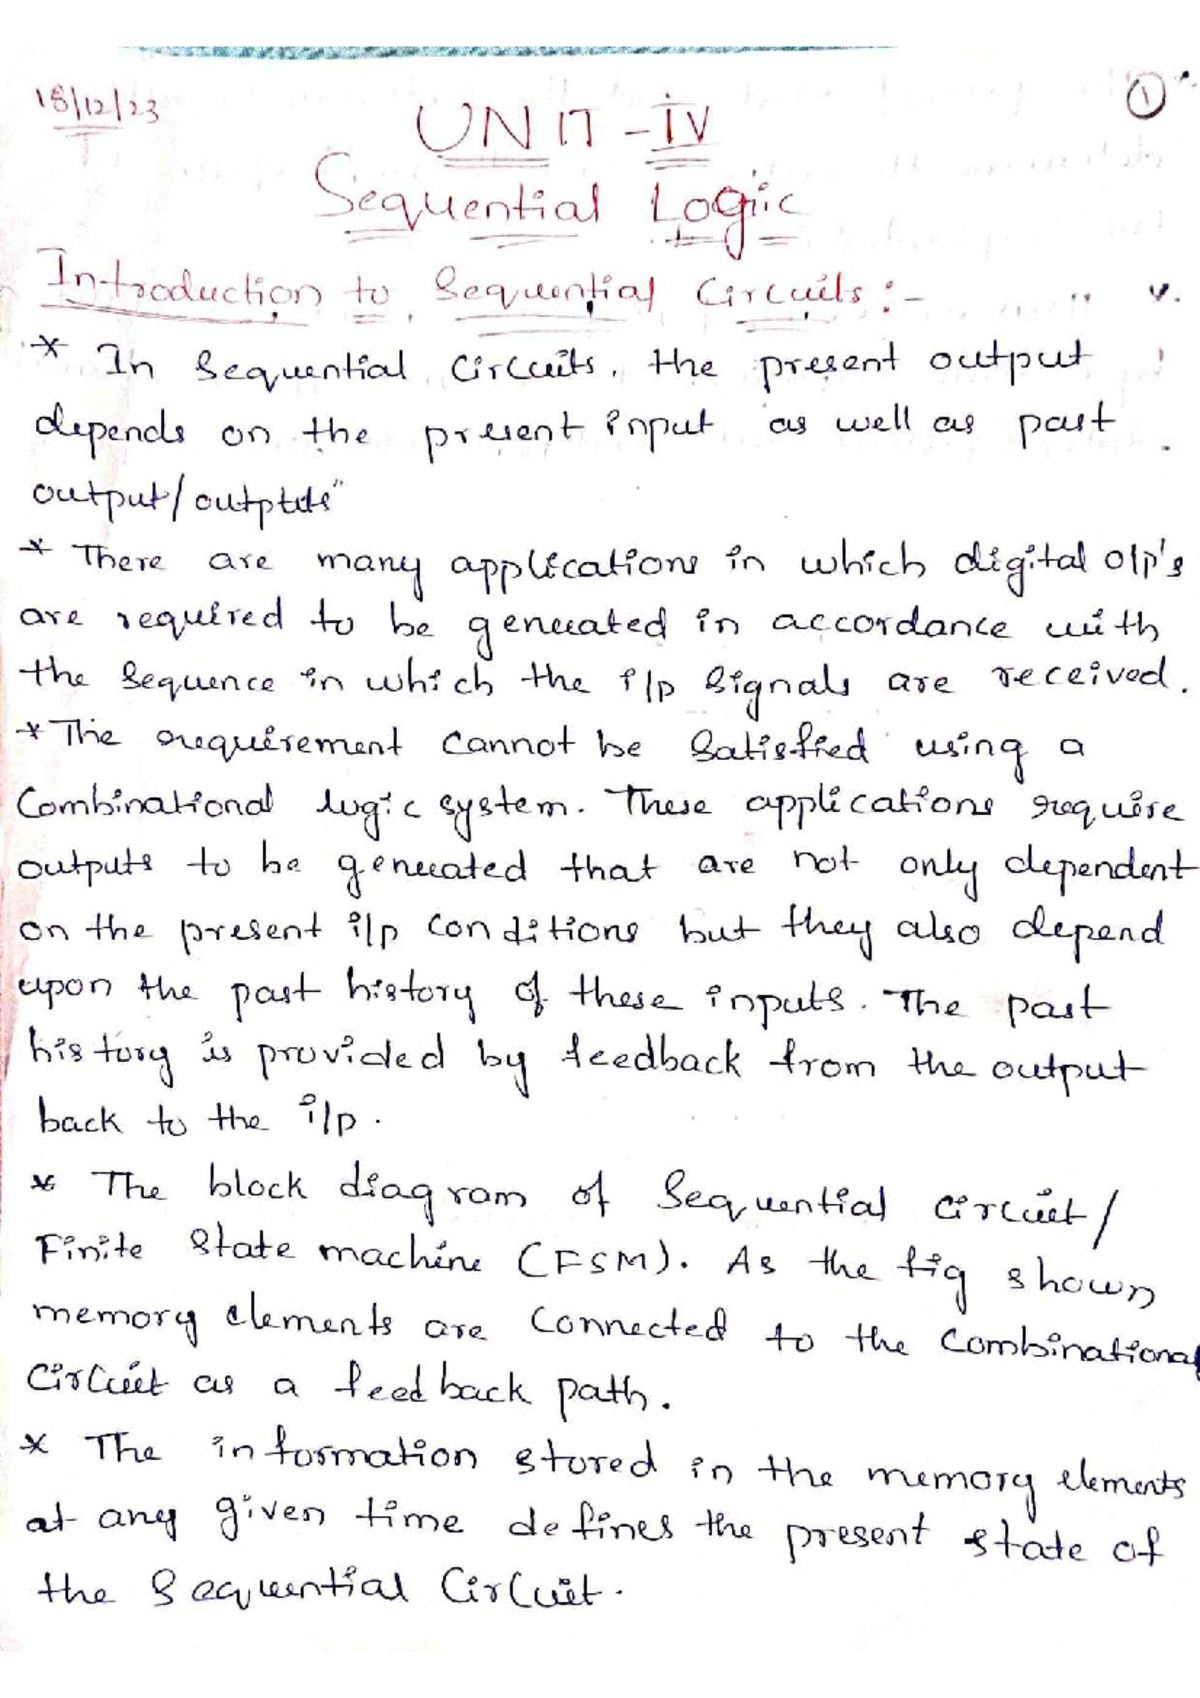 18/12/23
1
UNIT - IV
Sequential Logic
Introduction to Sequential Circuits :-
* In Sequential Circuits, the present output
depends on the present input as well as past
output/outputs"
* There are many applications in which digital o/p's
are required to be generated in accordance with
the sequence in which the i/p signals are received.
* The requirement cannot be satisfied using a
Combinational logic system. These applications require
outputs to be generated that are not only dependent
on the present i/p conditions but they also depend
upon the past history of these inputs. The past
history is provided by feedback from the output
back to the i/p.
* The block diagram of Sequential circuit/
Finite state machine (FSM). As the fig shown
memory elements are connected to the combinational
Circuit as a feedback path.
* The information stored in the memory elements
at any given time defines the present state of
the Sequential Circuit.